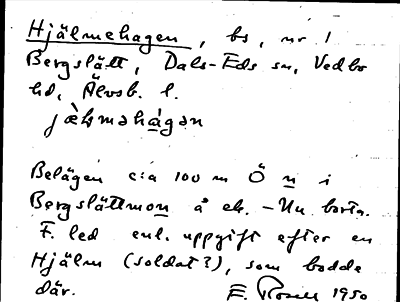 Hjälmehagen, bs, nr 1
Bergslätt, Dals-Eds sn, Vedbo
hd, Älvsb. l.
jæ̀lməhágən
Belägen c:a 100 m Ö n i
Bergslättmon å ek. - Nu borta.
F. led enl. uppgift efter en
Hjälm (soldat?), som bodde
där. E. 1950